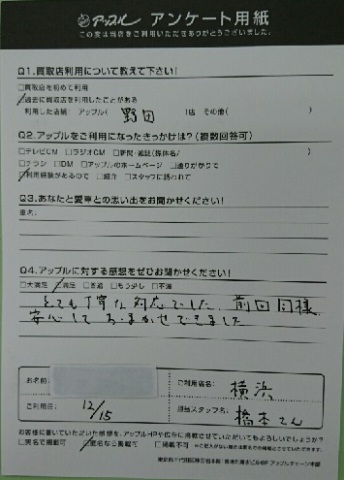 アップル アンケート用紙
この度は当店をご利用いただきありがとうございました。
Q1.買取店利用について教えて下さい!
□買取店を初めて利用
□過去に買取店を利用したことがある
利用した店舗 アップル( 野田 )店 その他( )
Q2.アップルをご利用になったきっかけは?(複数回答可)
□テレビCM □ラジオCM □新聞・雑誌(媒体名/ )
□チラシ □DM □アップルのホームページ □通りがかりで
□利用経験があるので □紹介 □スタッフに誘われて
Q3.あなたと愛車との思い出をお聞かせください!
車名:
Q4.アップルに対する感想をぜひお聞かせください!
□大満足 □満足 □普通 □もう少し □不満
とても丁寧な対応でした。前回同様
安心しておまかせできました
お名前:
ご利用店名: 横浜
ご利用日: 12/15
担当スタッフ名: 橋本さん
お客様に書いていただいた感想を、アップルHPや広告に掲載させていただいてもよろしいでしょうか?
□実名で掲載可 □匿名なら掲載可 □掲載不可